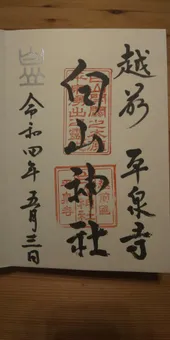 越前 平泉寺
白山神社
令和四年 五月三日